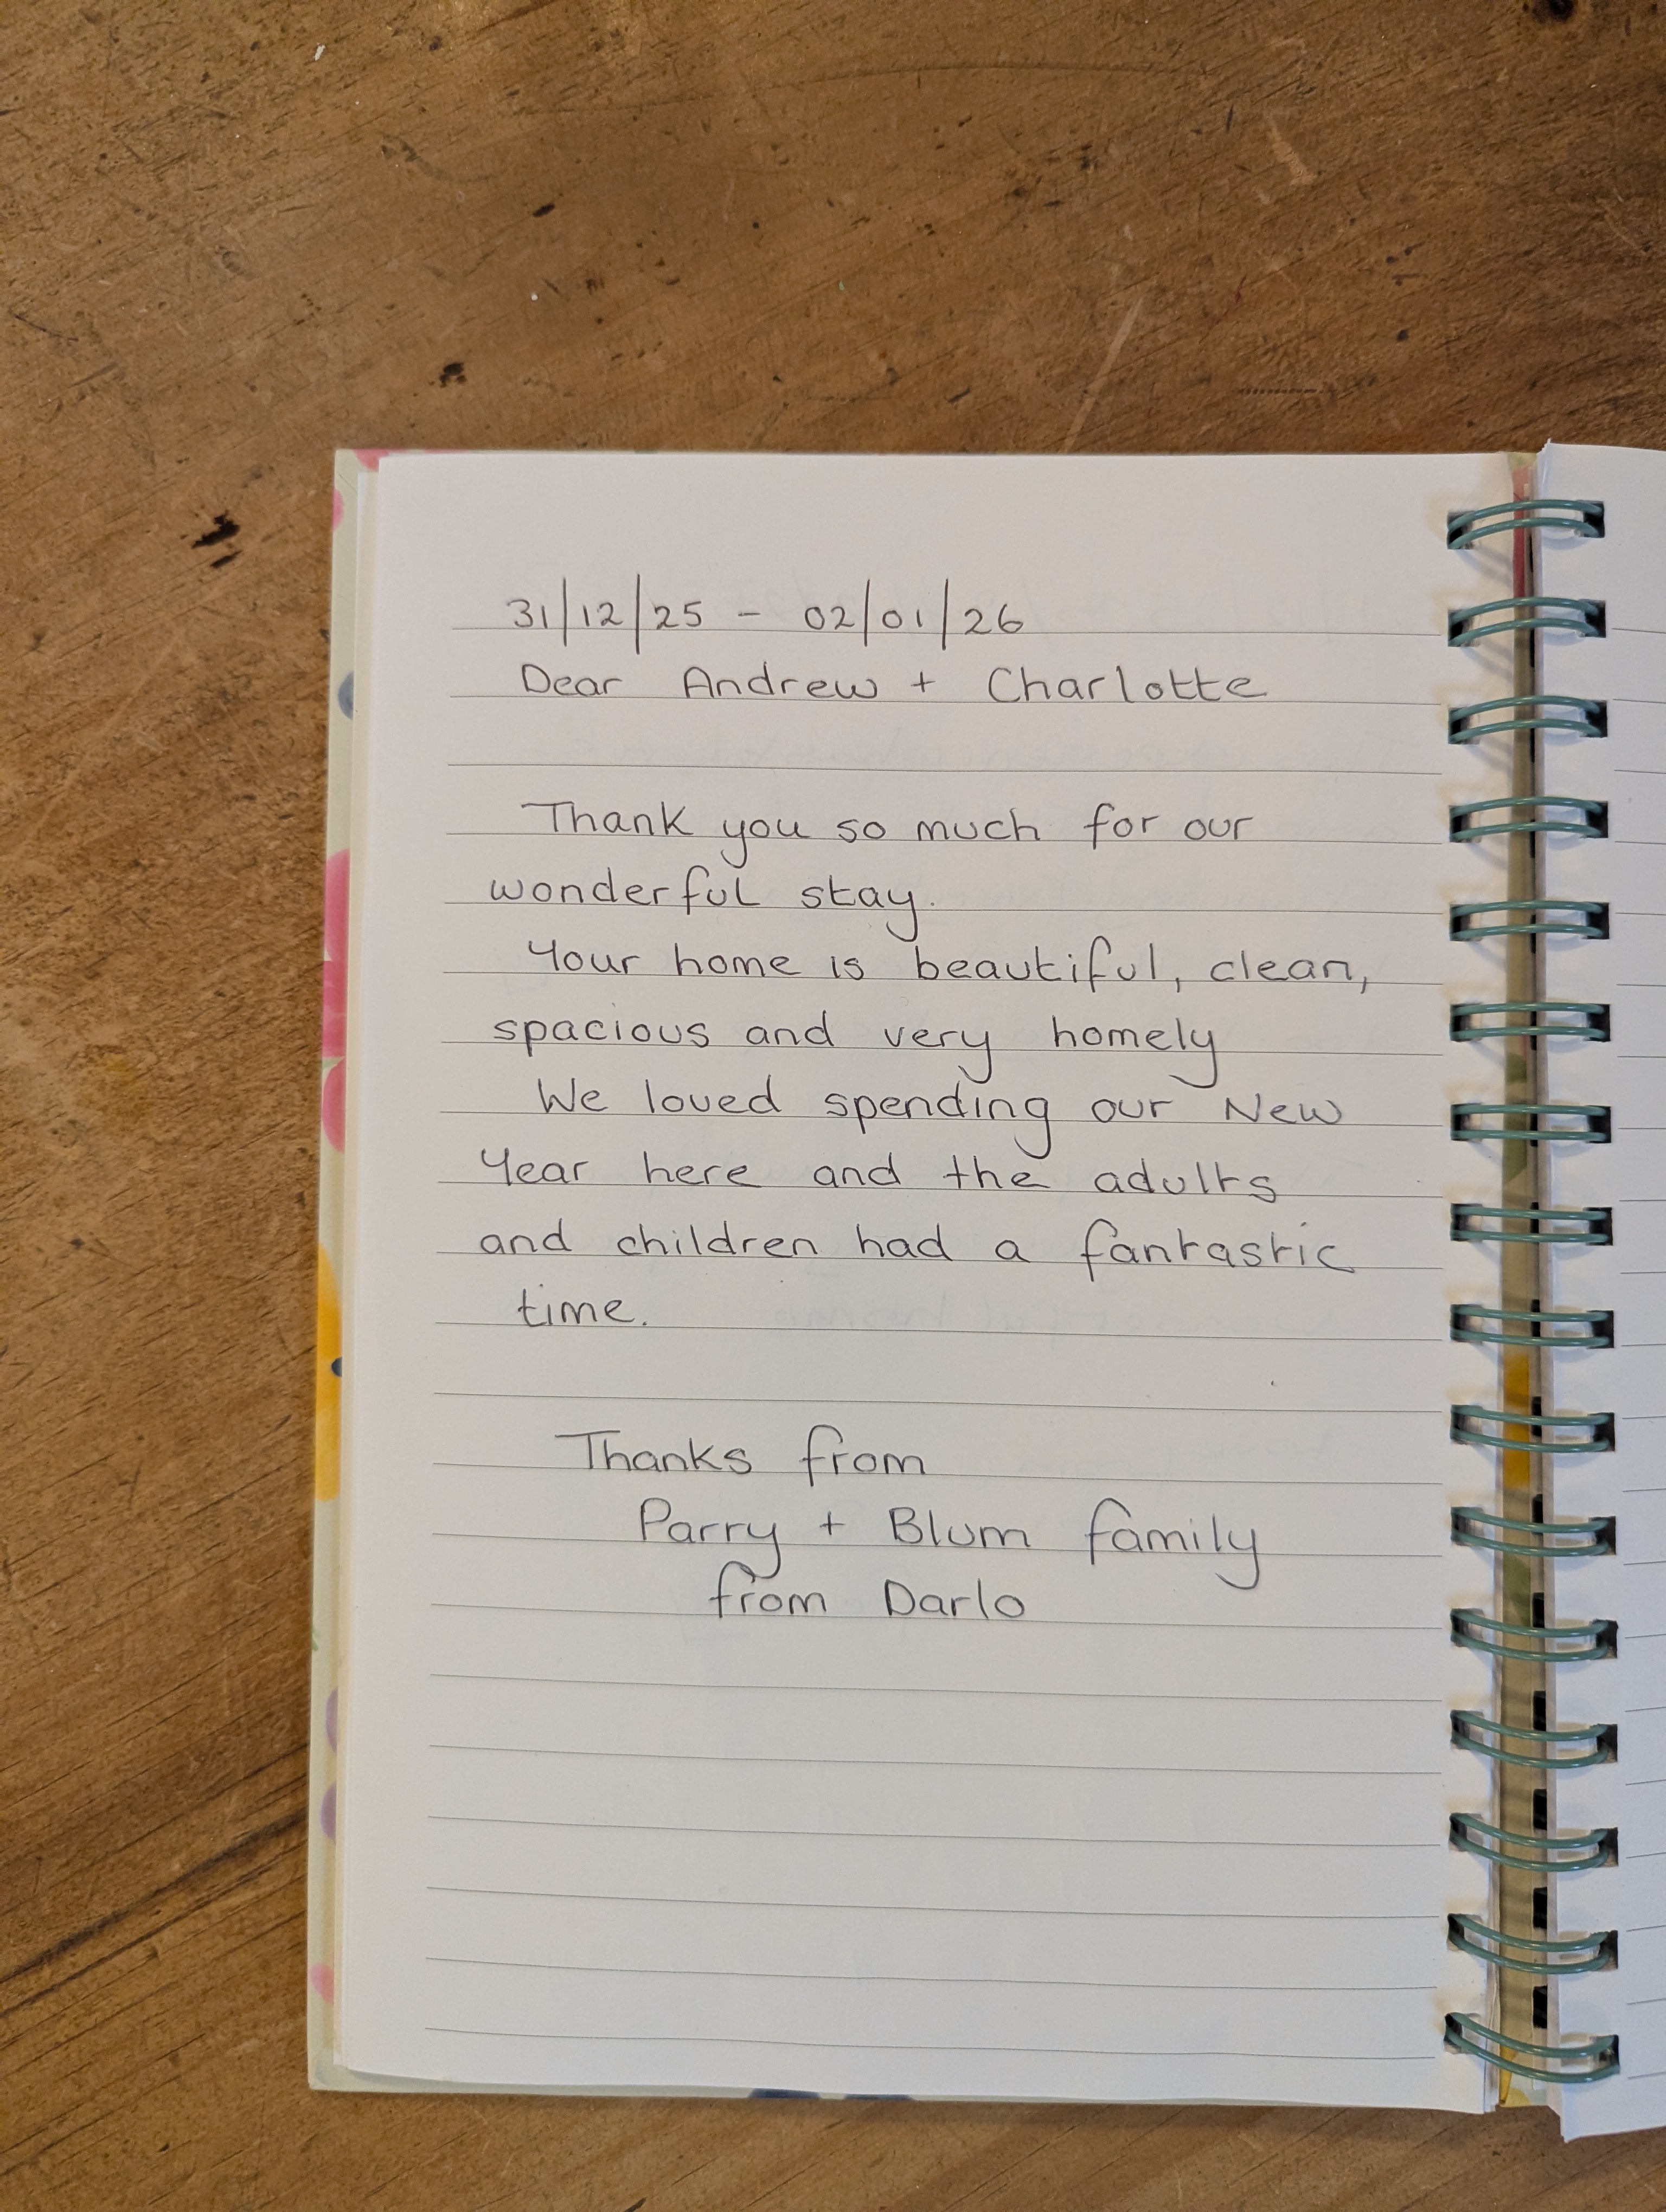 31/12/25 - 02/01/26
Dear Andrew + Charlotte
Thank you so much for our
wonderful stay.
Your home is beautiful, clean,
spacious and very homely
We loved spending our New
Year here and the adults
and children had a fantastic
time.
Thanks from
Parry + Blum family
from Darlo